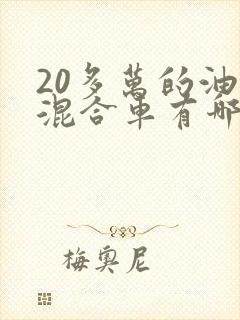 20多萬的油
混合車有哪
梅奧尼